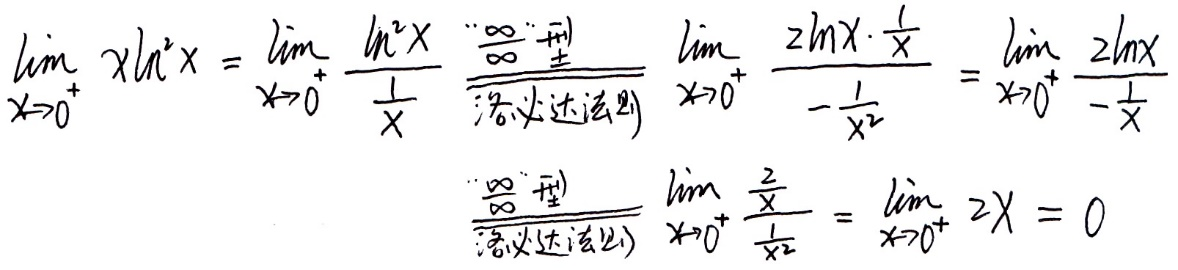 $\lim\limits_{x\to 0^+} x\ln^2 x = \lim\limits_{x\to 0^+} \frac{\ln^2 x}{\frac{1}{x}} \xlongequal[\text{洛必达法则}]{\text{“}\frac{\infty}{\infty}\text{”型}} \lim\limits_{x\to 0^+} \frac{2\ln x\cdot\frac{1}{x}}{-\frac{1}{x^2}} = \lim\limits_{x\to 0^+} \frac{2\ln x}{-\frac{1}{x}}$
$\xlongequal[\text{洛必达法则}]{\text{“}\frac{\infty}{\infty}\text{”型}} \lim\limits_{x\to 0^+} \frac{\frac{2}{x}}{\frac{1}{x^2}} = \lim\limits_{x\to 0^+} 2x = 0$